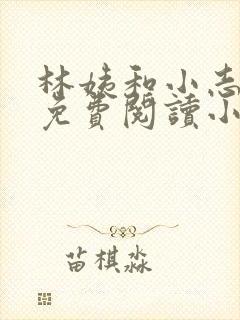 林姨和小志
免費閱讀小
苗棋淼